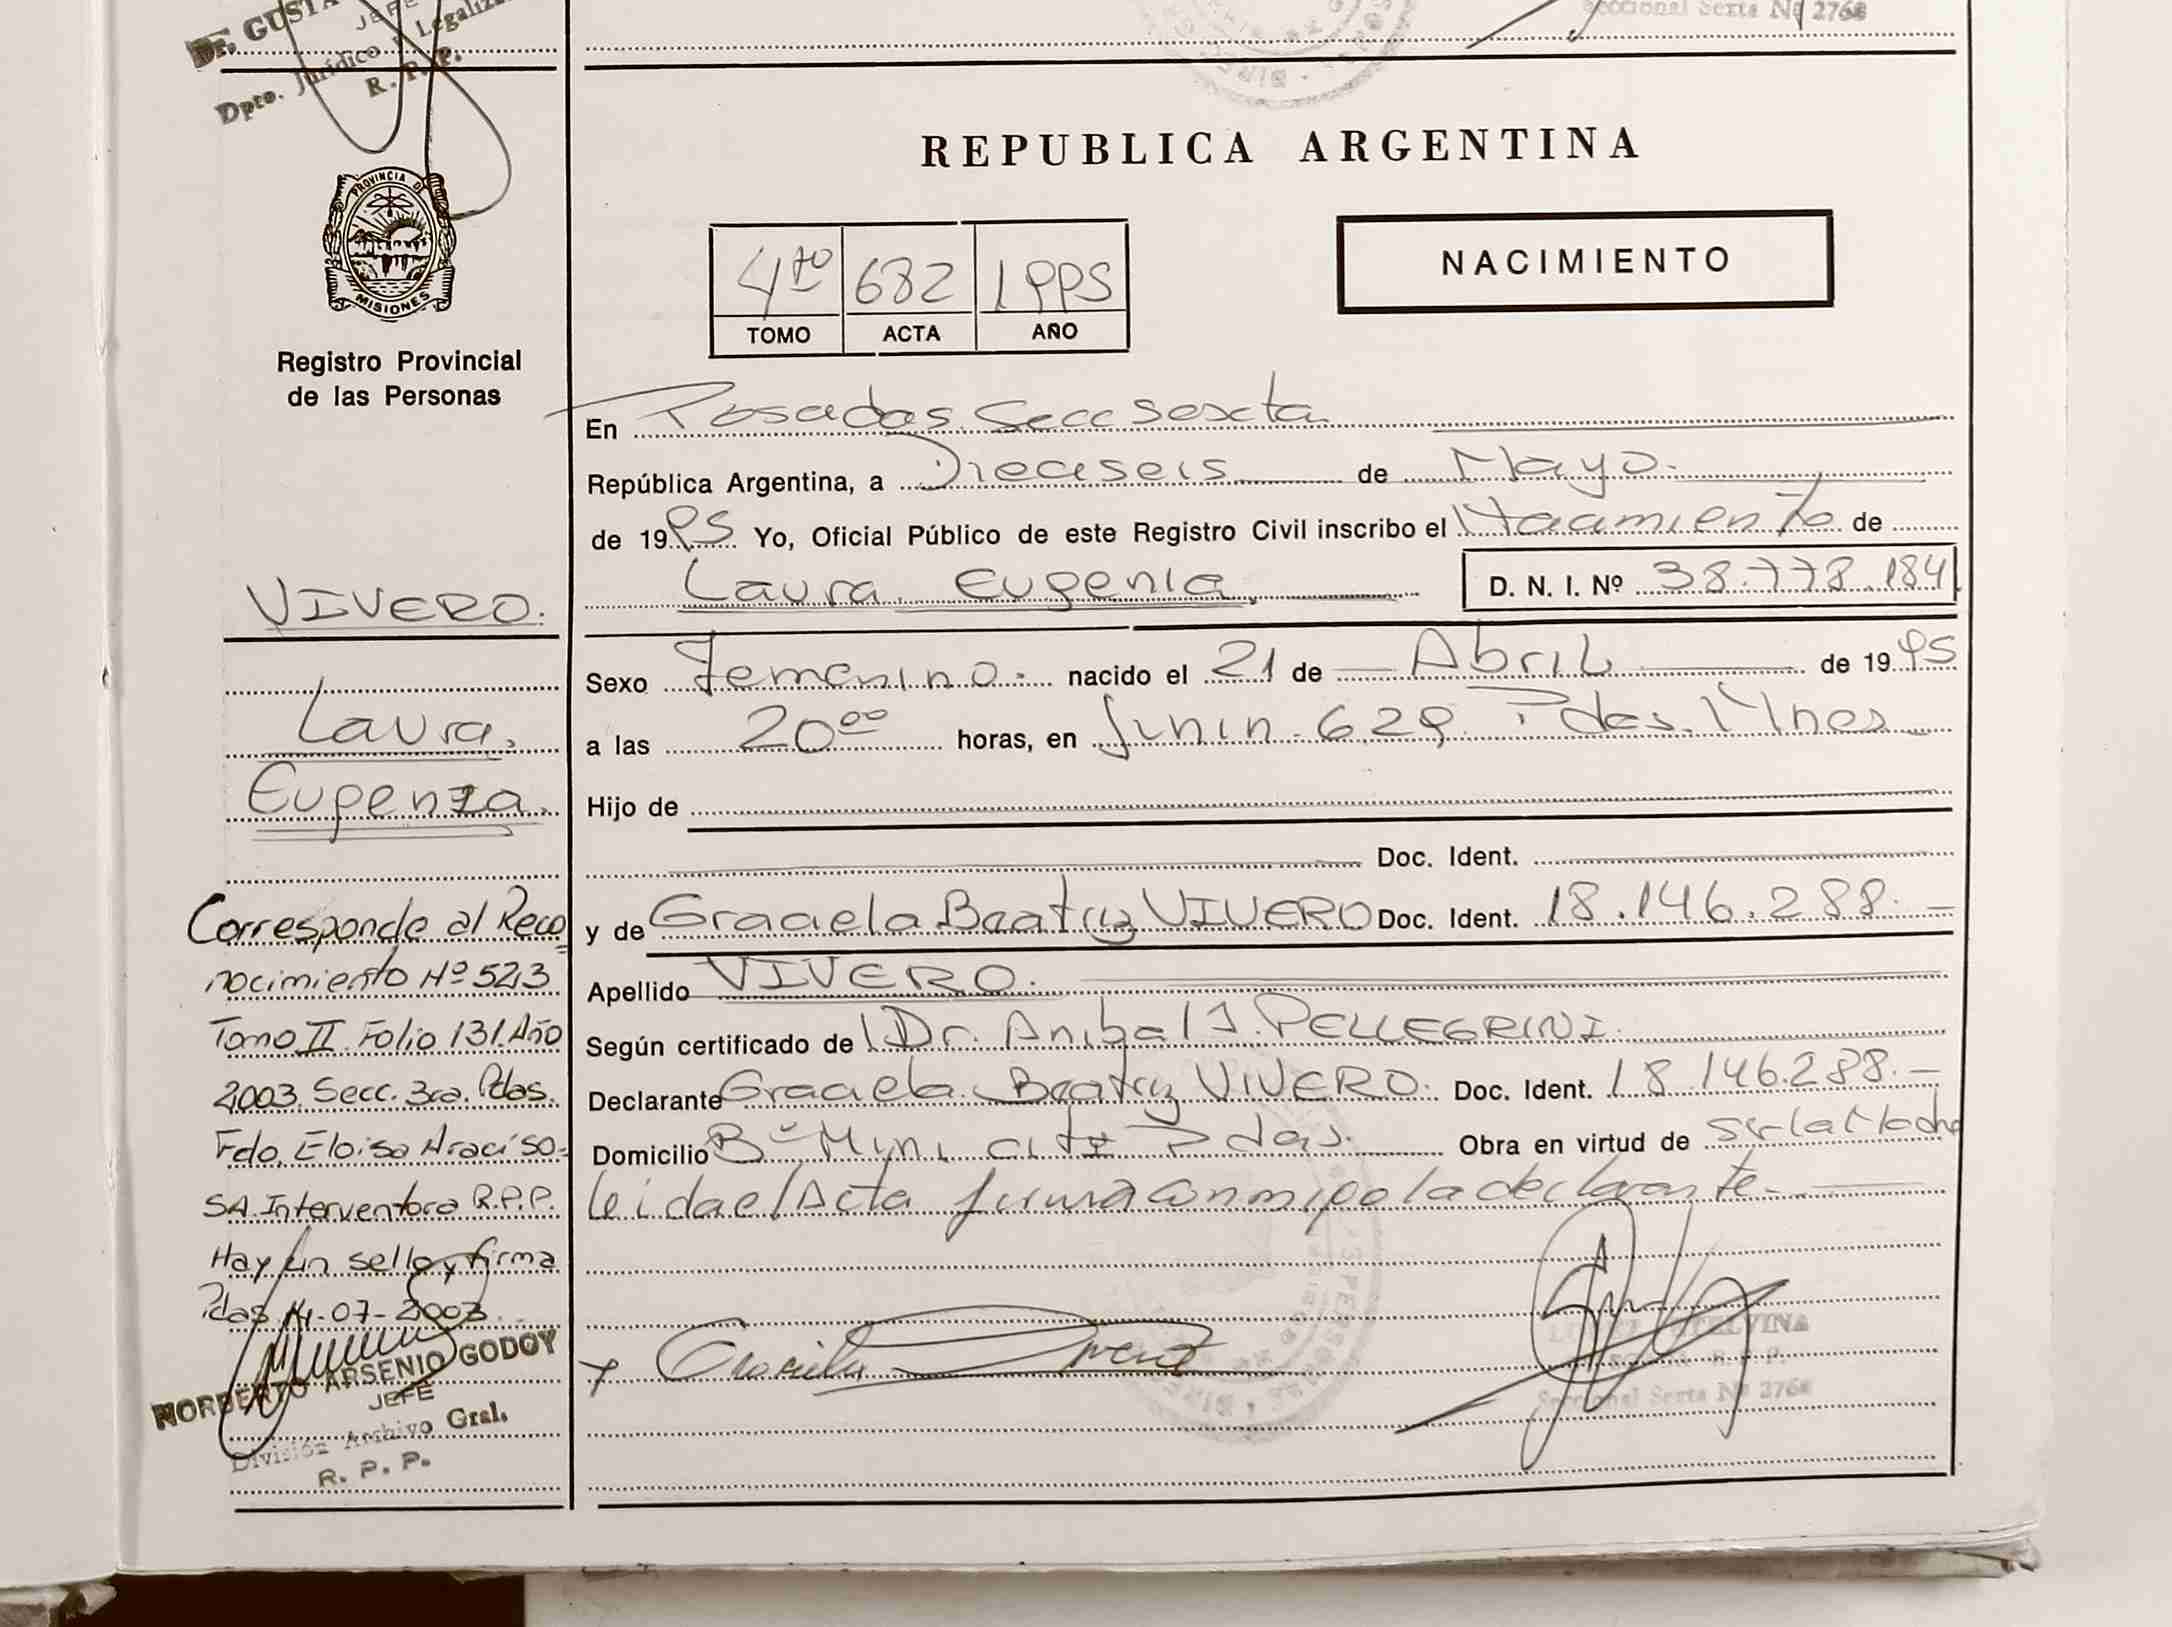 Dr. GUSTA
JEFE
Dpto. Jurídico y Legaliz
R. P. P.
Seccional Sexta Nº 2768
PROVINCIA DE
MISIONES
Registro Provincial
de las Personas
REPUBLICA ARGENTINA
4to 682 1995
TOMO ACTA AÑO
NACIMIENTO
En Posadas Secc Sexta
República Argentina, a Dieciseis de Mayo
de 1995 Yo, Oficial Público de este Registro Civil inscribo el Nacimiento de
Laura Eugenia D. N. I. Nº 38.778.184
Sexo Femenino. nacido el 21 de Abril de 1995
a las 20 00 horas, en Junin 629 Pdas. Mnes
Hijo de
Doc. Ident.
y de Graciela Beatriz VIVERO Doc. Ident. 18.146.288.-
Apellido VIVERO.
Según certificado de Dr. Anibal J. PELLEGRINI.
Declarante Graciela Beatriz VIVERO. Doc. Ident. 18.146.288.-
Domicilio Bº Mini City Pdas. Obra en virtud de
leida el Acta firma conmigo la declarante-
Seccional Sexta Nº 2768
VIVERO.
Laura,
Eugenia.
Corresponde al Reco
nocimiento Nº 523
Tomo II Folio 131 Año
2003. Secc. 3ra. Pdas.
Fdo. Eloisa
SA Interventora R.P.P.
Hay un sello y firma
Pdas 14-07-2003
NORBERTO ARSENIO GODOY
JEFE
División Archivo Gral.
R. P. P.